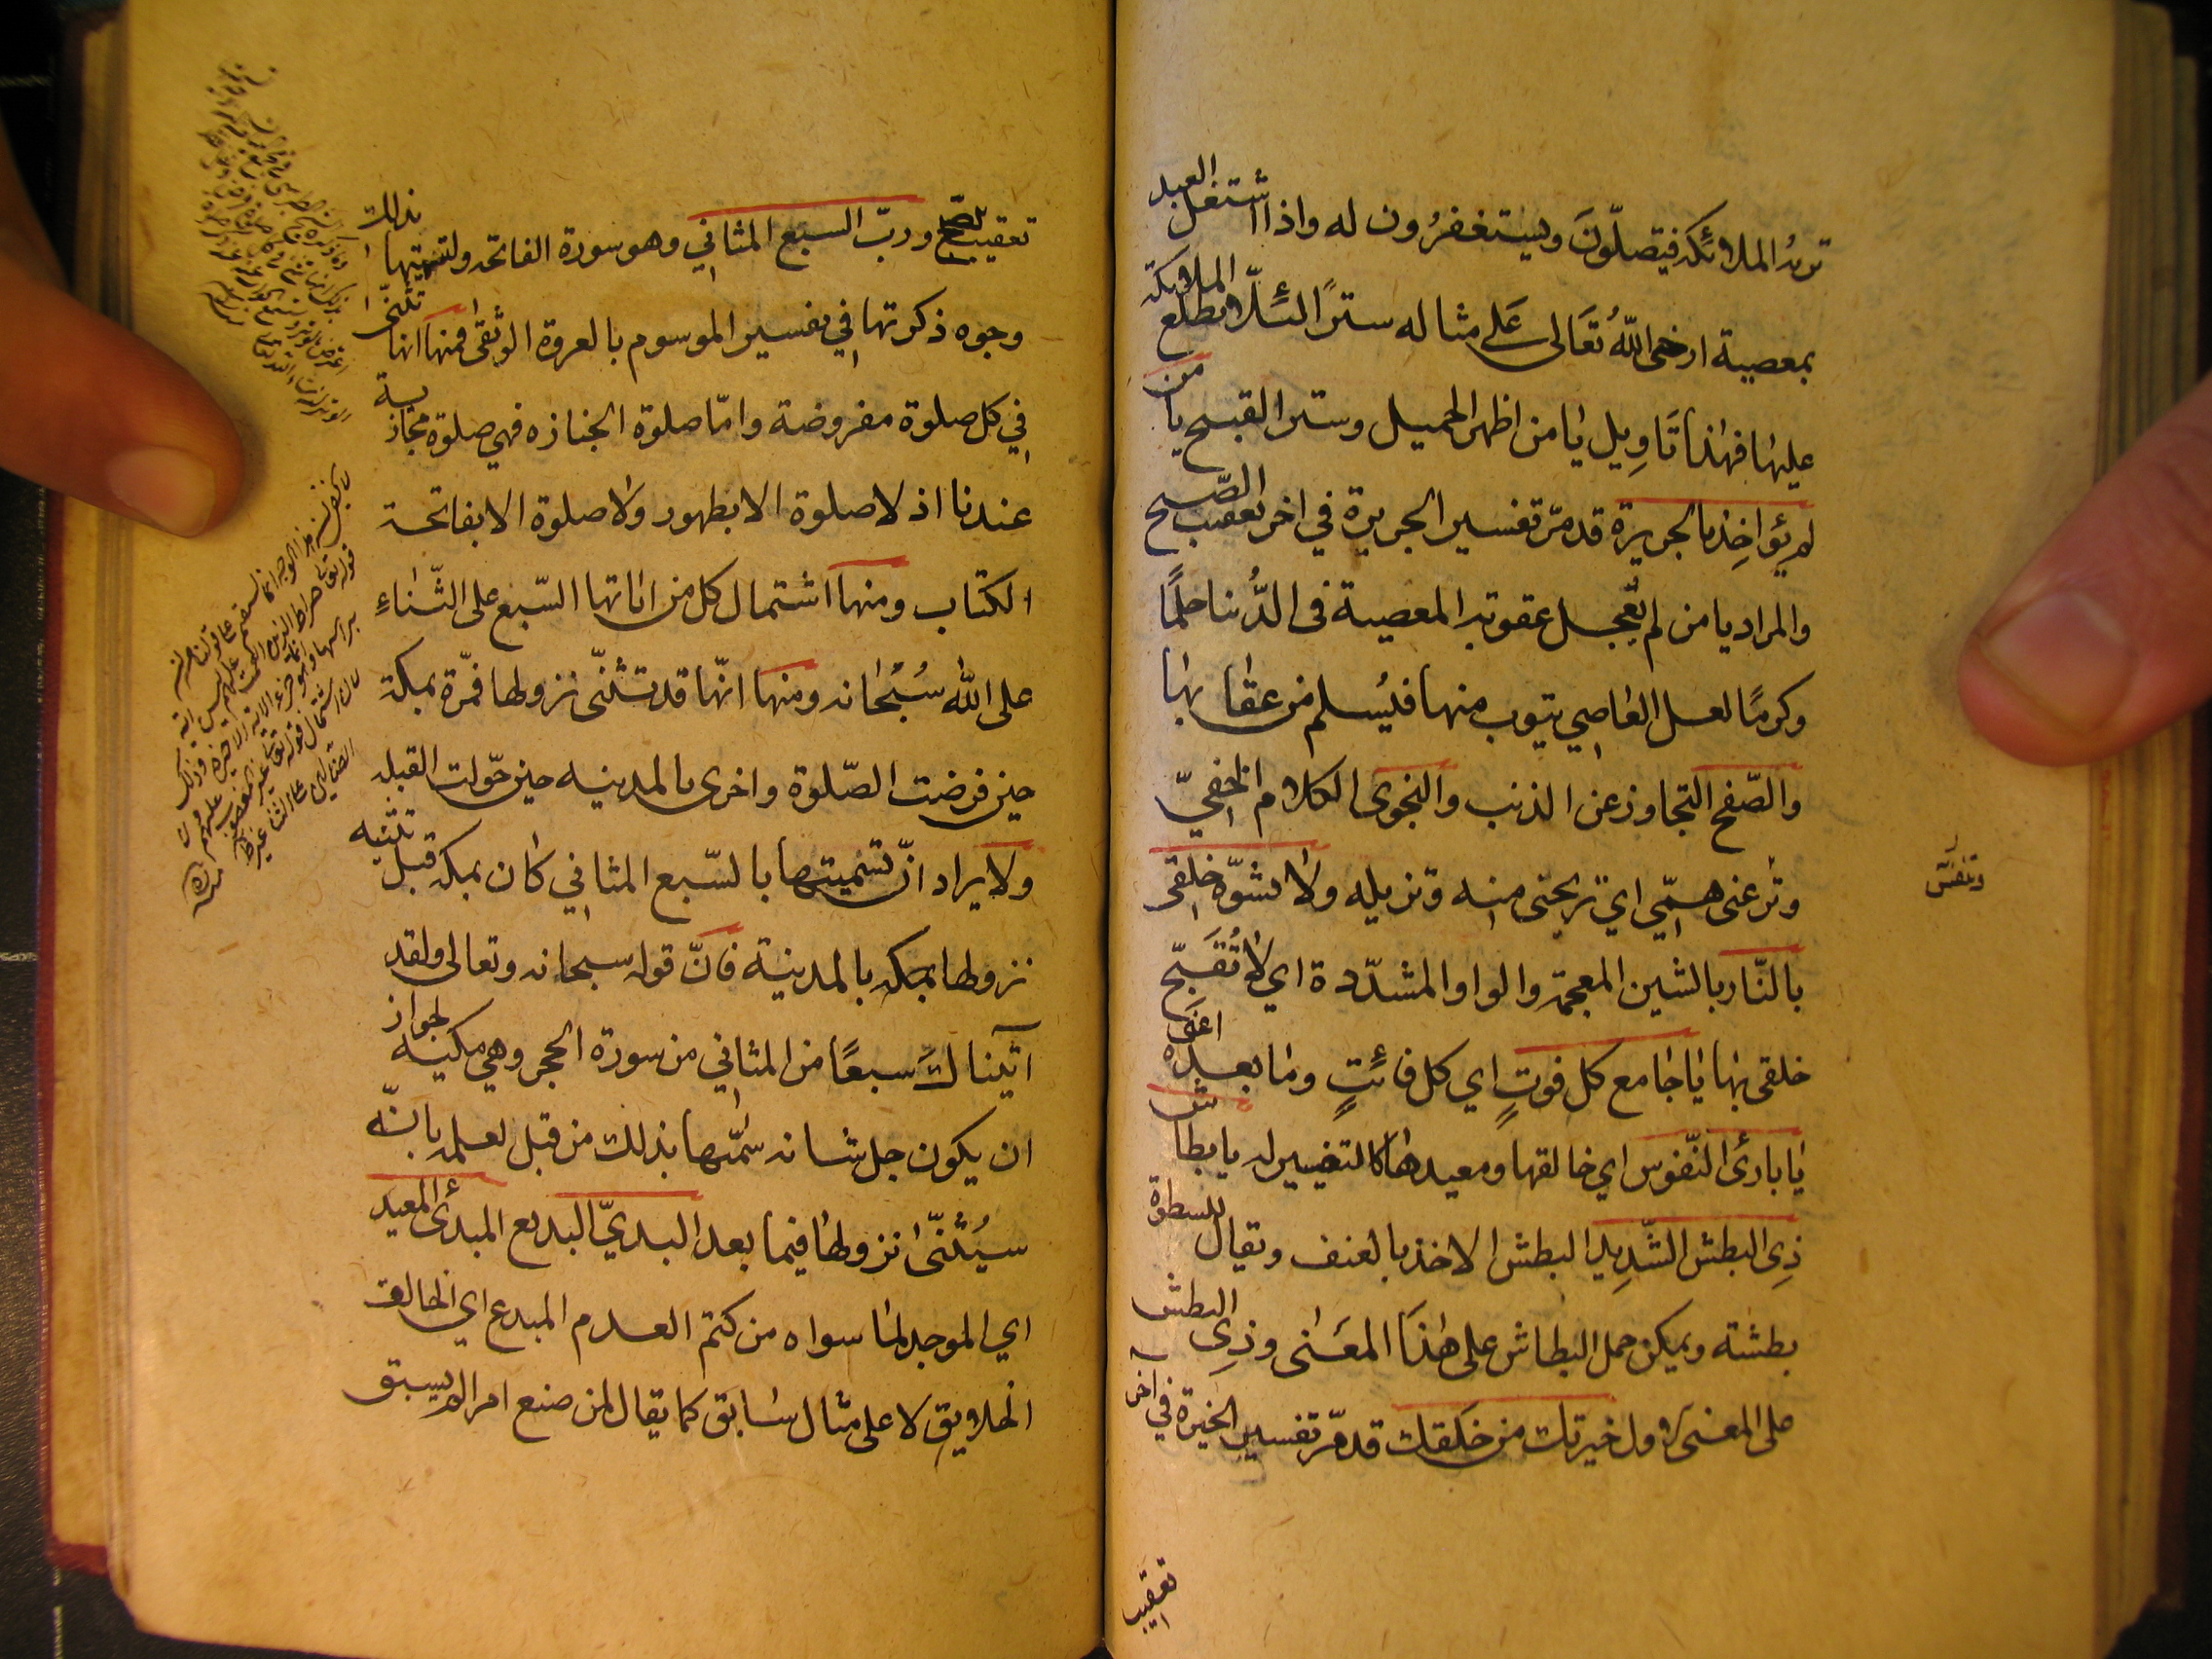 تريه الملائكه فيصلّونَ ويستغفرُون له واذا اشتغل العبد
بمعصية ارخى اللّهُ تعَالى عَلى مثاله سترًا لئلّا يطلع الملائكة
عليها فهٰذا تَاوِيل يٰا من اظهر الجميل وستر القبيح يا من
لم يؤاخِذ بالجريرة قد مرّ تفسير الجريرة في اخر تعقيب الصّبح
والمراد يا من لم يُعجل عقوبة المعصية فى الدُّنيا حلمًا
وكرمًا لعل العٰاصي يتوب منها فيُسلم من عقٰابهٰا
والصّفح التجاوز عن الذنب والنجوى الكلام الخفيّ
وتفرّ عنى همّي اي تريحنى منه وتزيله ولا تشوّه خلقى
بالنّار بالشين المعجمة والواو المشدّدة اي لا تُقَبّح
خلقى بهٰا يٰا جٰامع كل فوتٍ اي كل فائتٍ ومٰا بعده اعنى
يٰا بارئ النّفوس اي خالقها ومعيدهٰا كالتفسير له يا بطاش
ذِى البطش الشّدِيد البطش الاخذ بالعنف ويقال للسطوة
بطشته ويمكن حمل البطاش على هٰذَا المعَنٰى وذِى البطش
على المعنى الاول خيرتك من خلقك قد مرّ تفسير الخيرة في اخر
تعقيب
تعقيب الصّبح وربّ السبع المثاني وهو سورة الفاتحه ولتسميتها بذلك
وجوه ذكرتها في تفسير الموسوم بالعروة الوثقى فمنها انها تثنّى
في كل صلوة مفروضة وامّا صلوة الجنازه فهي صلوة مجازية
عندنا اذ لا صلوة الا بطهور ولا صلوة الا بفاتحة
الكتاب ومنها اشتمال كل من اٰياتها السّبع على الثّنٰاءِ
على اللّه سُبْحٰانه ومنها انّها قد تثنّى نزولها فمرّة بمكة
حين فرضت الصّلوة واخرى بالمدينه حين حوّلت القبله
ولا يراد انّ تسميتها بالسّبع المثاني كان بمكه قبل تثنيه
نزولها بمكه بالمدينة فانّ قوله سبحانه وتعالى ولقد
آتيناك سبعًا من المثاني من سورة الحجر وهي مكيه لجواز
ان يكون جل شانه سمّٰها بذلك من قبل لعلمه بانّه
سيُثنّىٰ نزولهٰا فيمٰا بعد البديّ البديع المبدئ المعيد
اي الموجد لمٰا سواه من كتم العدم المبدع اي الخالق
الخلايق لا على مثال سٰابق كما يقال لمن صنع امرا لم يسبق